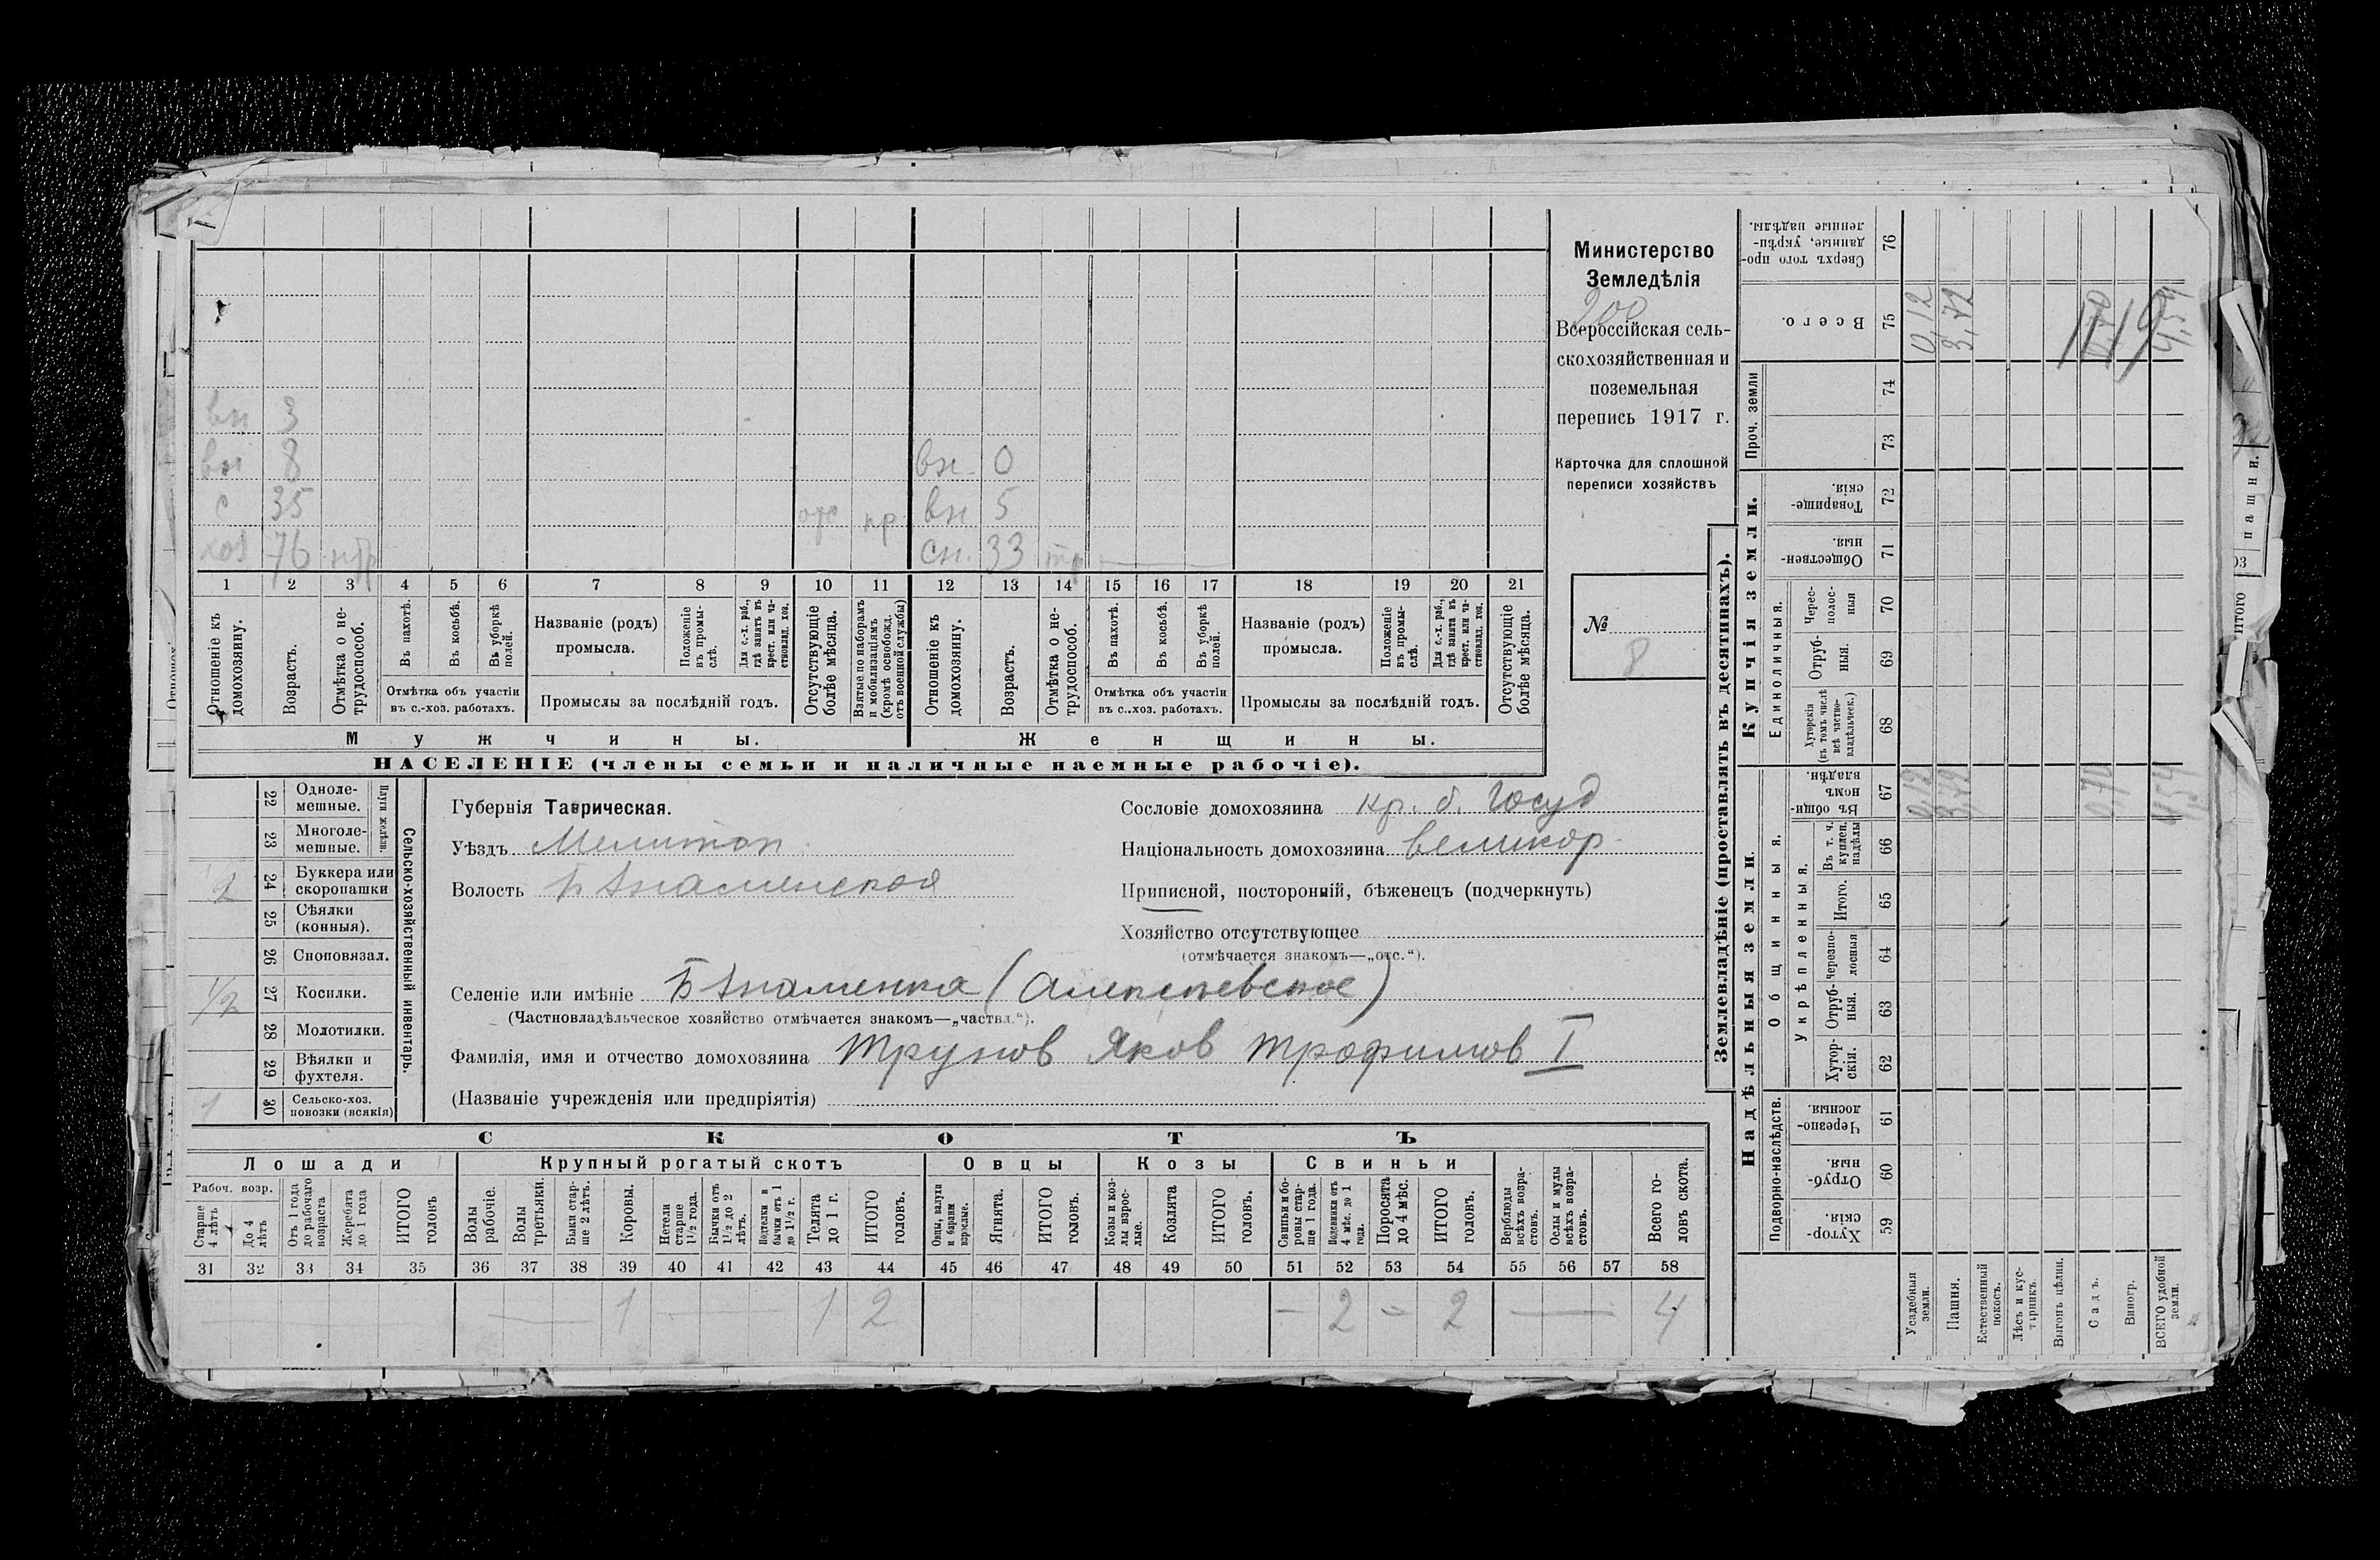 Министерство
Земледѣлія
200
Всероссійская сель-
скохозяйственная и
поземельная
перепись 1917 г.
Карточка для сплошной
переписи хозяйствъ
№
8
вн 3
вн 8 вн. 0
с 35 отс пр. вн 5
хоз 76 нтр сн. 33 тр
1 2 3 4 5 6 7 8 9 10 11 12 13 14 15 16 17 18 19 20 21
Отношеніе къ домохозяину.
Возрастъ.
Отмѣтка о не-трудоспособ.
Въ пахотѣ.
Въ косьбѣ.
Въ уборкѣ полей.
Отмѣтка объ участіи
въ с.-хоз. работахъ.
Названіе (родъ)
промысла.
Положеніе въ промы-слѣ.
Для с.-х. раб., гдѣ занятъ въ крест. или ча-стновлад. хоз.
Промыслы за послѣдній годъ.
Отсутствующіе болѣе мѣсяца.
Взятые по наборамъ и мобилизаціямъ (кромѣ освобожд. отъ военной службы)
Отношеніе къ домохозяину.
Возрастъ.
Отмѣтка о не-трудоспособ.
Въ пахотѣ.
Въ косьбѣ.
Въ уборкѣ полей.
Отмѣтка объ участіи
въ с.-хоз. работахъ.
Названіе (родъ)
промысла.
Положеніе въ промы-слѣ.
Для с.-х. раб., гдѣ занята въ крест. или ча-стновлад. хоз.
Промыслы за послѣдній годъ.
Отсутствующіе болѣе мѣсяца.
Мужчины. Женщины.
НАСЕЛЕНІЕ (члены семьи и наличные наемные рабочіе).
Сельско-хозяйственный инвентарь.
Плуги желѣзн.
22 Одноле-мешные.
23 Многоле-мешные.
2 24 Буккера или скоропашки
25 Сѣялки (конныя).
26 Сноповязал.
1/2 27 Косилки.
28 Молотилки.
29 Вѣялки и фухтеля.
1 30 Сельско-хоз. повозки (всякія)
Губернія Таврическая.
Уѣздъ Мелитоп.
Волость Б Знаменская
Сословіе домохозяина кр. б. Госуд
Національность домохозяина великор.
Приписной, посторонній, бѣженецъ (подчеркнуть)
Хозяйство отсутствующее
(отмѣчается знакомъ—„отс.“).
Селеніе или имѣніе Б Знаменка (Алексеевское)
(Частновладѣльческое хозяйство отмѣчается знакомъ—„частвл.“).
Фамилія, имя и отчество домохозяина Трунов Яков Трофимов I
(Названіе учрежденія или предпріятія)
СКОТЪ
Лошади Крупный рогатый скотъ Овцы Козы Свиньи
Рабоч. возр.
Старше 4 лѣтъ
До 4 лѣтъ
Отъ 1 года до рабочаго возраста
Жеребята до 1 года
ИТОГО головъ
Волы рабочіе.
Волы третьяки.
Быки стар-ше 2 лѣтъ.
Коровы.
Нетели старше 1½ года.
Бычки отъ 1½ до 2 лѣтъ.
Подтелки и бычки отъ 1 до 1½ г.
Телята до 1 г.
ИТОГО головъ.
Овцы, валухи и бараны взрослые.
Ягнята.
ИТОГО головъ.
Козы и коз-лы взрос-лые.
Козлята
ИТОГО головъ.
Свиньи и бо-ровы стар-ше 1 года.
Подсвинки отъ 4 мѣс. до 1 года.
Поросята до 4 мѣс.
ИТОГО головъ.
Верблюды всѣхъ возра-стовъ.
Ослы и мулы всѣхъ возра-стовъ.
Всего го-ловъ скота.
31 32 33 34 35 36 37 38 39 40 41 42 43 44 45 46 47 48 49 50 51 52 53 54 55 56 57 58
— 1 — 1 2 — 2 — 2 — 4
Землевладѣніе (проставлять въ десятинахъ).
Надѣльныя земли. Купчія земли.
Подворно-наслѣдств.
Общинныя.
Укрѣпленныя.
Единоличныя.
Проч. земли
59 Хутор-скія.
60 Отруб-ныя.
61 Черезпо-лосныя.
62 Хутор-скія.
63 Отруб-ныя.
64 Черезпо-лосныя
65 Итого.
66 Въ т. ч. куплен. надѣлы
67 Въ общин-номъ владѣн.
68 Хуторскія (въ томъ числѣ всѣ частно-владѣльческ.)
69 Отруб-ныя.
70 Черес-полос-ныя
71 Обществен-ныя.
72 Товарище-скія.
73
74
75 Всего.
76 Сверхъ того про-данные, укрѣп-ленные надѣлы.
Усадебныя земли. 0,12 0,12
Пашня. 3,72 3,72
Естественный покосъ.
Лѣсъ и кус-тарникъ.
Выгонъ цѣлин.
Садъ. 0,70 0,70
Виногр.
ВСЕГО удобной земли. 4,54 4,54
119